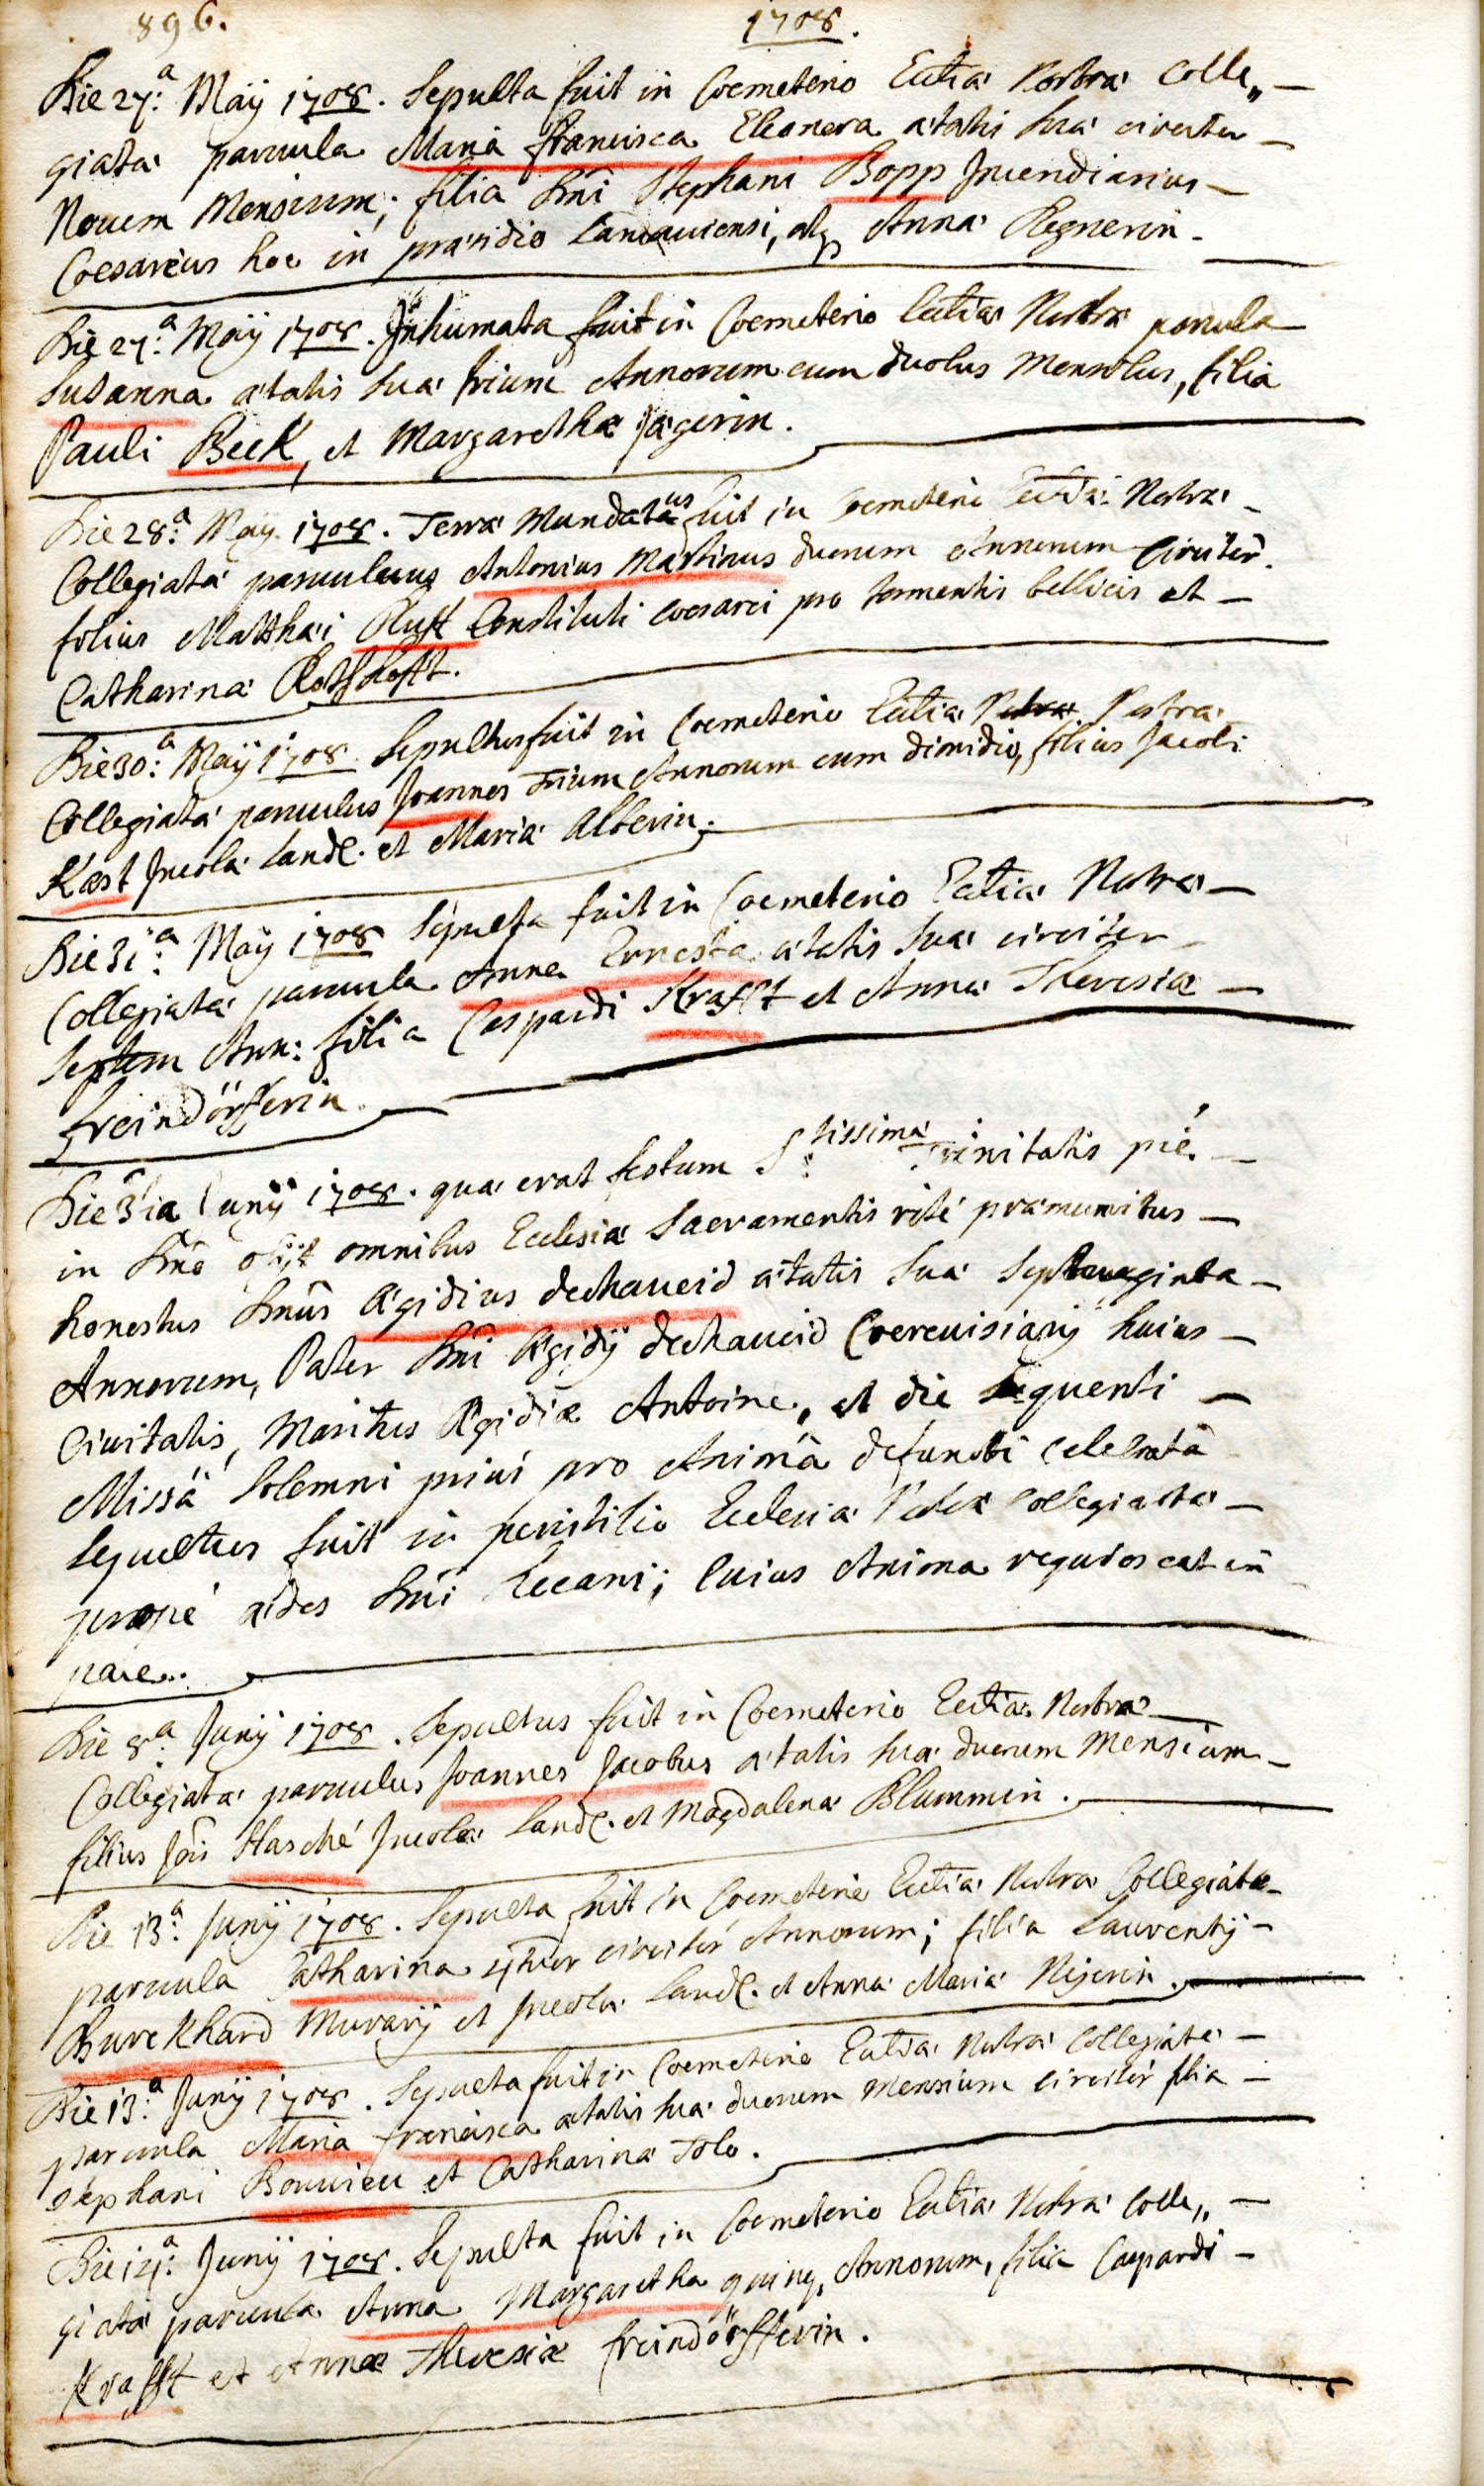 896.
1708.
Die 27.a Maÿ 1708. Sepulta fuit in Coemeterio Eccliæ Nostræ Colle„
giatæ paruula Maria Francisca Eleonora ætatis suæ circiter
Nouem Mensium; filia Dni Stephani Bopp Incendiarius
Coesareus hoc in præsidio Landauiensi, atq Annæ Regnerin.
Die 27.a Maÿ 1708. Inhumata fuit in Coemeterio Eccliæ Nostræ paruula
Susanna ætatis suæ trium Annorum cum duobus Mensibus, filia
Pauli Beck, et Margarethæ Jægerin.
Die 28.a Maÿ 1708. Terræ Mandatus fuit in Coemeterio Eccliæ Nostræ
Collegiatæ paruulus Antonius Martinus duorum Annorum Circiter.
folius Matthæi Ruft Constituti Coesarei pro tormentis bellicis et
Catharinæ
Die 30.a Maÿ 1708. Sepultus fuit in Coemeterio Eccliæ Nostræ
Collegiatæ paruulus Joannes Trium Annorum cum dimidio, filius Jacobi
Kæst Incolæ Land. et Mariæ Alberin.
Die 31.a Maÿ 1708 Sepulta fuit in Coemeterio Eccliæ Nostræ
Collegiatæ paruula Anna Ernesta ætatis suæ circiter
Septem Ann: filia Caspardi Krafft et Annæ Theresiæ
freindörfferin.
Die 3tia Junÿ 1708. quæ erat festum S:tissimæ Trinitatis pié
in Dno obijt omnibus Ecclesiæ Sacramentis rité præmunitus
honestus Dnus Ægidius dechaueid ætatis suæ Septuaginta
Annorum, Pater Dni Ægidÿ dechaueid Coereuisiarÿ huius
Ciuitatis, Maritus Ægidiæ Antoine, et die sequenti
Missâ Solemni prius pro Animâ defuncti Celebratâ
Sepultus fuit in peristilio Ecclesiæ Collegiatæ
propé ædes Dni Decani; Cuius Anima requiescat in
pace.
Die 8.a Junÿ 1708. Sepultus fuit in Coemeterio Eccliæ Nostræ
Collegiatæ paruulus Joannes Jacobus ætatis suæ duorum Mensium
filius Jois Hasché Incolæ Land. et Magdalenæ Blummin.
Die 13.a Junÿ 1708. Sepulta fuit in Coemeterio Eccliæ Nostræ Collegiatæ
paruula Catharina 4tuor circitér Annorum; filia Laurentÿ
Burckhard Murarÿ et Incolæ Land. et Annæ Mariæ
Die 13.a Junÿ 1708. Sepulta fuit in Coemeterio Eccliæ Nostræ Collegiatæ
paruula Maria francisca ætatis suæ duorum Mensium circitér filia
Stephani Bouuieu et Catharinæ Tolo.
Die 14.a Junÿ 1708. Sepulta fuit in Coemeterio Eccliæ Nostræ Colle„
giatæ paruula Anna Margaretha quinq. Annorum, filia Caspardi
Krafft et Annæ Theresiæ freindörfferin.